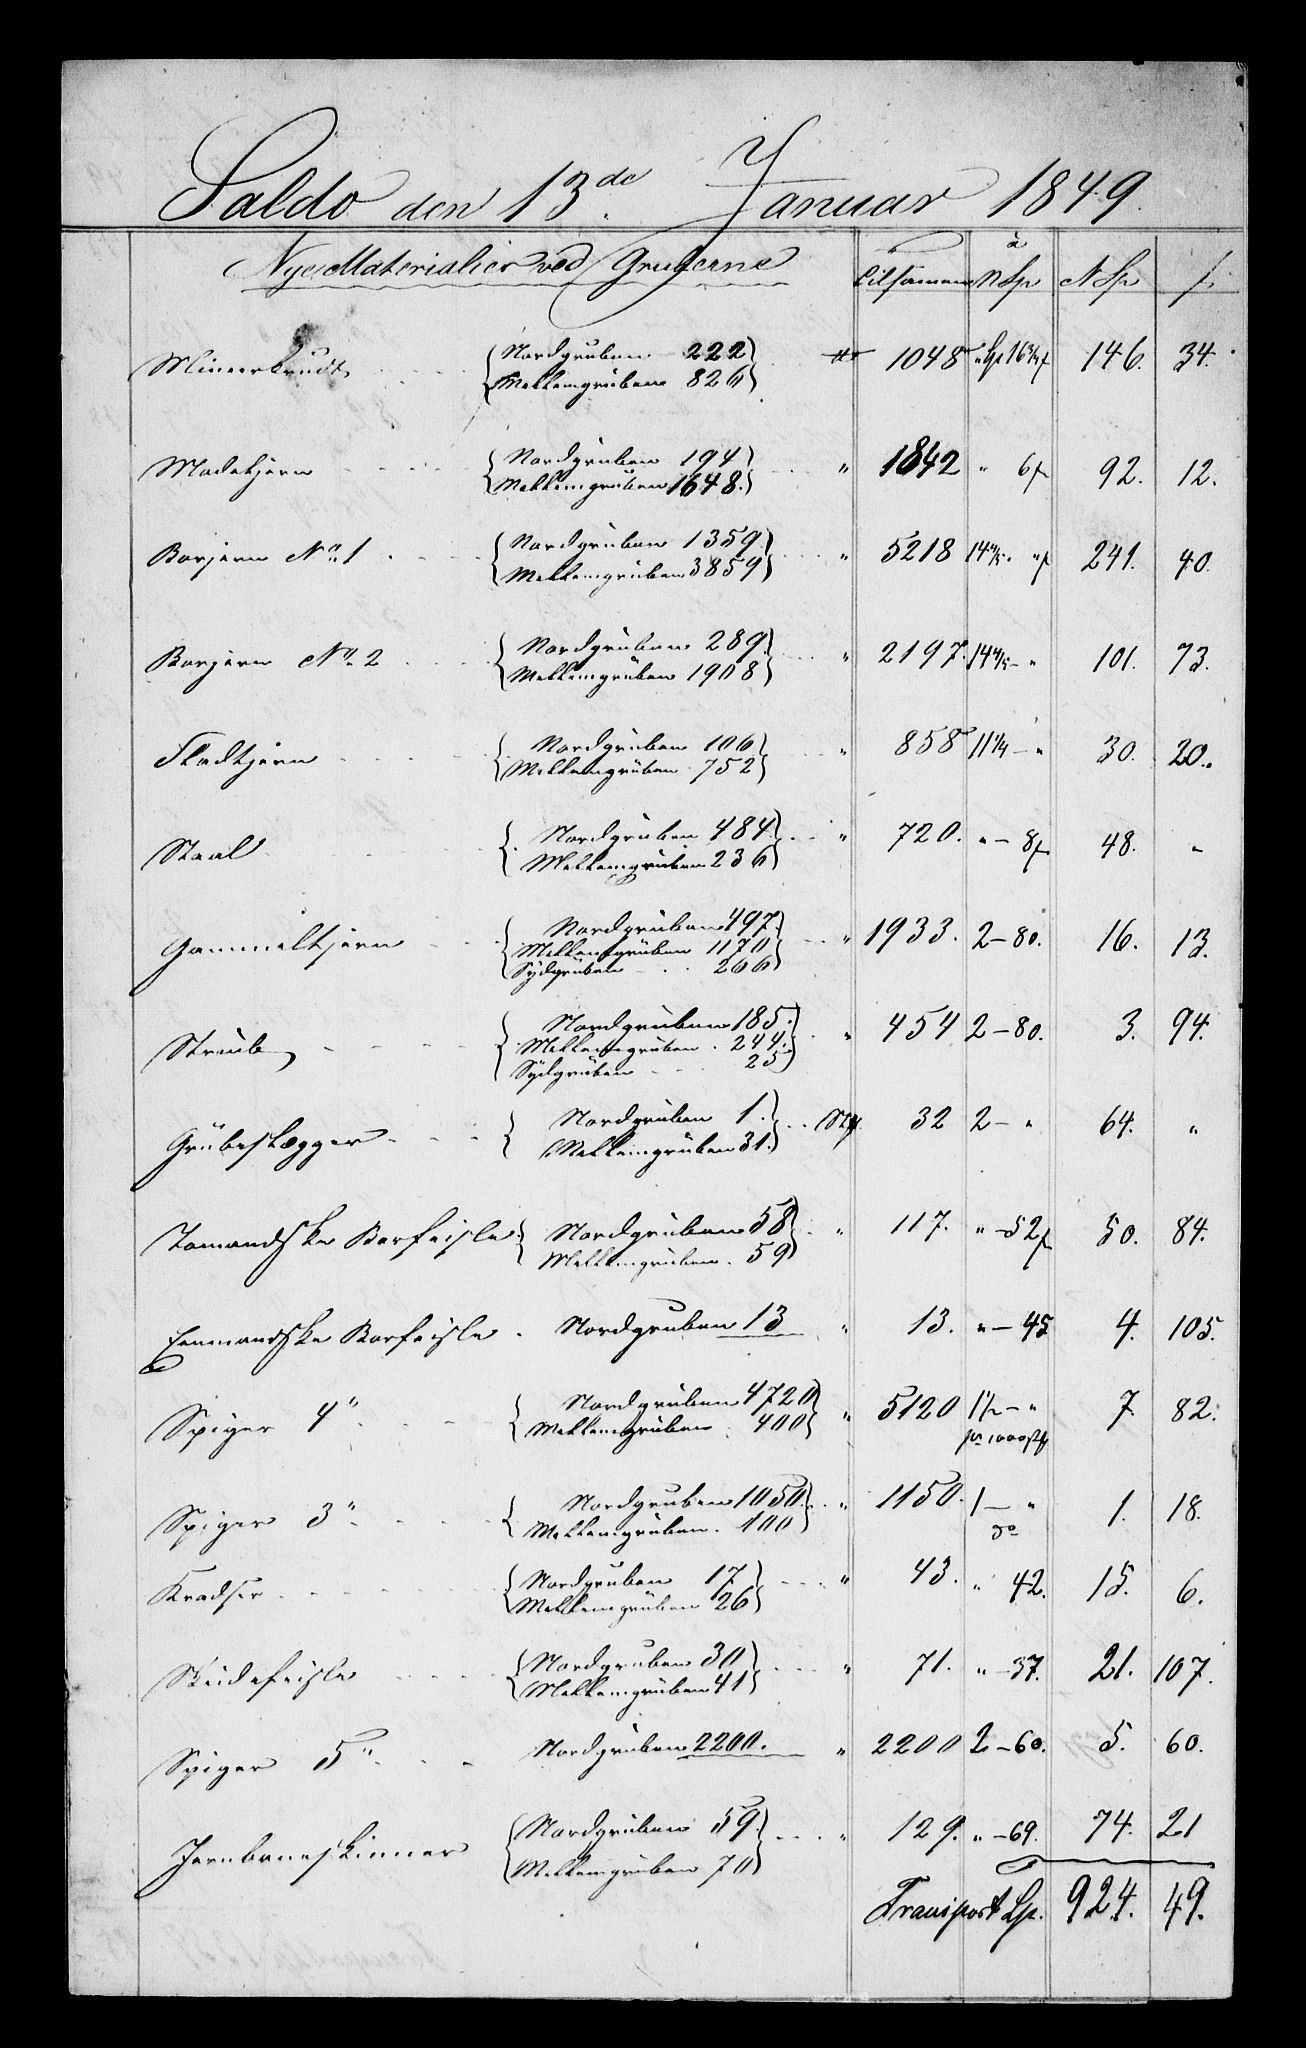 Saldo den 13de Januar 1849.
Nye Materialier ved Gruberne Tilsammen à N Sp N Sp ſ.
Minerkrudt { Nordgruben 222 } 1048 " 16¾ ſ 146. 34.
Mellemgruben 826
Madekjern { Nordgruben 194 } " 1842 " 6 ſ 92. 12.
Mellemgruben 1648.
Borjern No 1 { Nordgruben 1359 } " 5218 14 " ſ 241. 40.
Mellemgruben 3859
Borjern No 2 { Nordgruben 289. } " 2197. 14 - " 101. 73.
Mellemgruben 1908
Fladtjern { Nordgruben 106 } " 858 11¼ - " 30. 20.
Mellemgruben 752
Staal { Nordgruben 484. } " 720. " - 8 ſ 48. "
Mellemgruben 236
Gammeltjern { Nordgruben 497. } " 1933. 2 - 80. 16. 13.
Mellemgruben 1170
Sydgruben 266
Straub { Nordgruben 185. } " 454 2 - 80. 3. 94.
Mellemgruben 244.
Sydgruben 25
Grubeslægger { Nordgruben 1. } Stk. 32 2 - " 64. "
Mellemgruben 31.
Tomandske Borfeisle { Nordgruben 58 } " 117. " - 52 ſ 50. 84.
Mellemgruben 59
Eenmandske Borfeisle Nordgruben 13 " 13. " - 45 4. 105.
Spiger 4" { Nordgruben 4720 } " 5120 1½ - " 7. 82.
Mellemgruben 400 pr 1000 Stk
Spiger 3" { Nordgruben 1050. } " 1150. 1 - " 1. 18.
Mellemgruben 100 do
Kradser { Nordgruben 17 } " 43. " 42. 15. 6.
Mellemgruben 26
Skeidefeisle { Nordgruben 30 } " 71. " - 37. 21. 107.
Mellemgruben 41
Spiger 5" Nordgruben 2200. " 2200 2 - 60. 5. 60.
Jernbaneskinner { Nordgruben 59. } " 129. " - 69. 74. 21
Mellemgruben 70
Transport Sp. 924. 49.